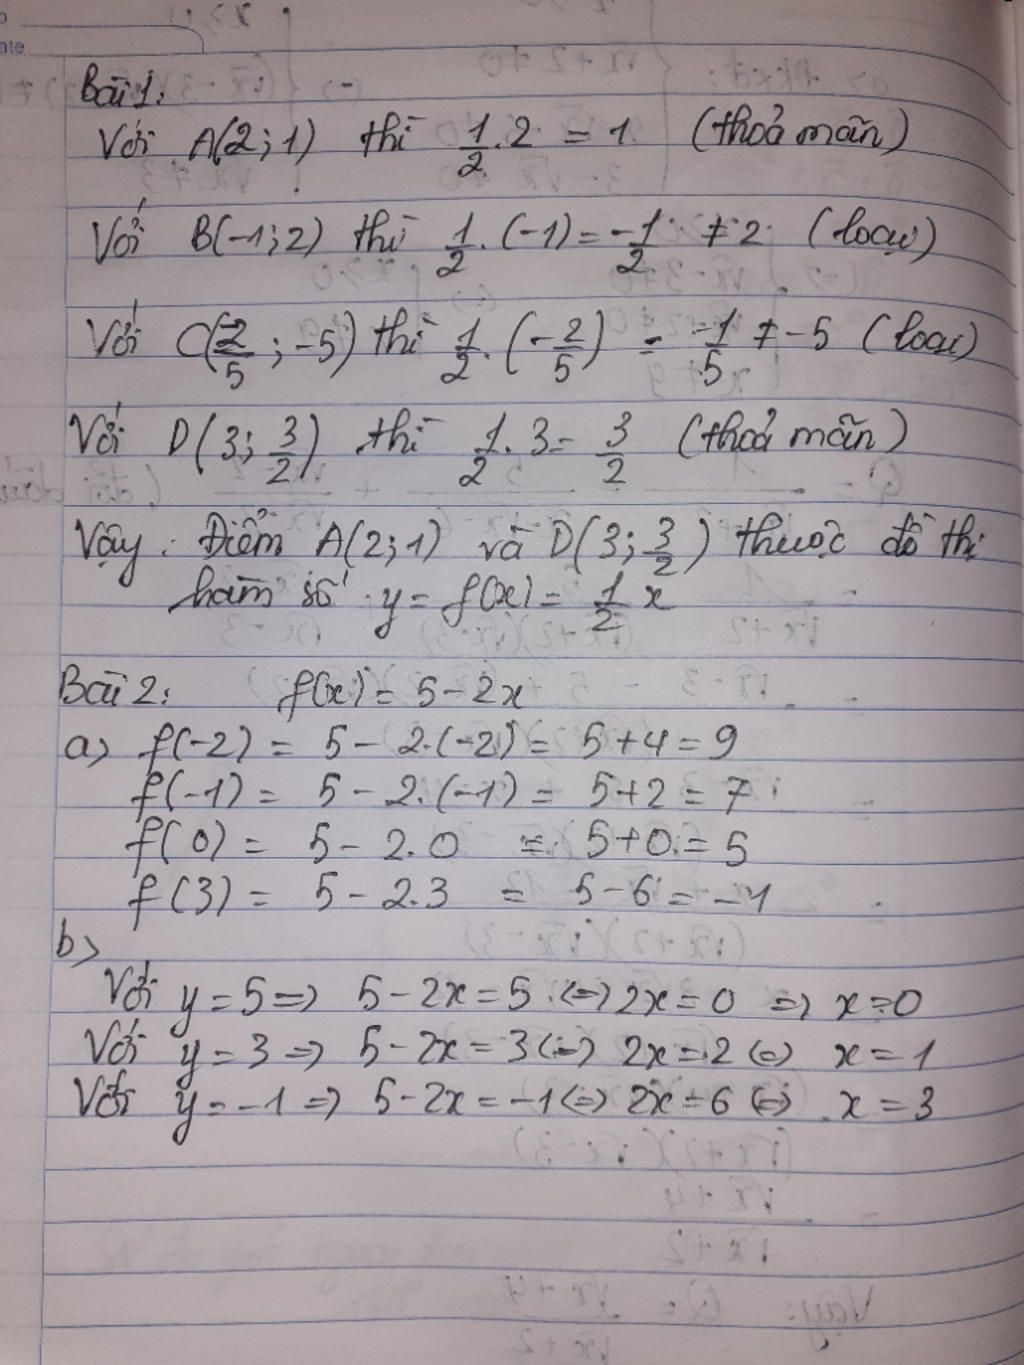 ate
Bài 1:
Với A(2;1) thì 1/2 . 2 = 1 (thoả mãn)
Với B(-1;2) thì 1/2 . (-1) = -1/2 ≠ 2 (loại)
Với C(-2/5; -5) thì 1/2 . (-2/5) = -1/5 ≠ -5 (loại)
Với D(3; 3/2) thì 1/2 . 3 = 3/2 (thoả mãn)
Vậy : Điểm A(2;1) và D(3; 3/2) thuộc đồ thị
hàm số y = f(x) = 1/2 x
Bài 2: f(x) = 5 - 2x
a) f(-2) = 5 - 2.(-2) = 5 + 4 = 9
f(-1) = 5 - 2.(-1) = 5 + 2 = 7
f(0) = 5 - 2.0 = 5 + 0 = 5
f(3) = 5 - 2.3 = 5 - 6 = -1
b)
Với y = 5 => 5 - 2x = 5 <=> 2x = 0 => x = 0
Với y = 3 => 5 - 2x = 3 <=> 2x = 2 <=> x = 1
Với y = -1 => 5 - 2x = -1 <=> 2x = 6 <=> x = 3